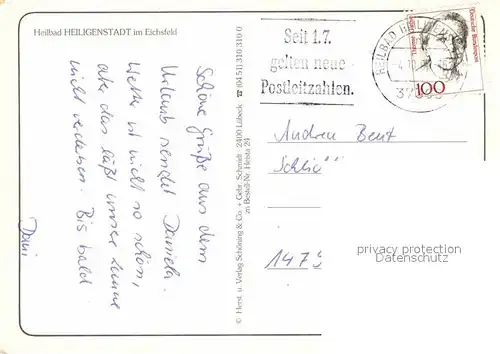 Heilbad HEILIGENSTADT im Eichsfeld
Seit 1.7.
gelten neue
Postleitzahlen.
HEILBAD HEILIGEN
Deutsche Bundespost
100
Schöne Grüße aus dem
Urlaub sendet Daniela.
Wetter ist nicht so schön,
aber das läßt unsere Laune
nicht verderben. Bis bald
Dani
© Herst. u. Verlag Schöning & Co. + Gebr. Schmidt · 2400 Lübeck ☎ (0451) 310310 0
zu Bestell-Nr. Heista 24
Andrea Bent
Schli
1479
privacy protection
Datenschutz